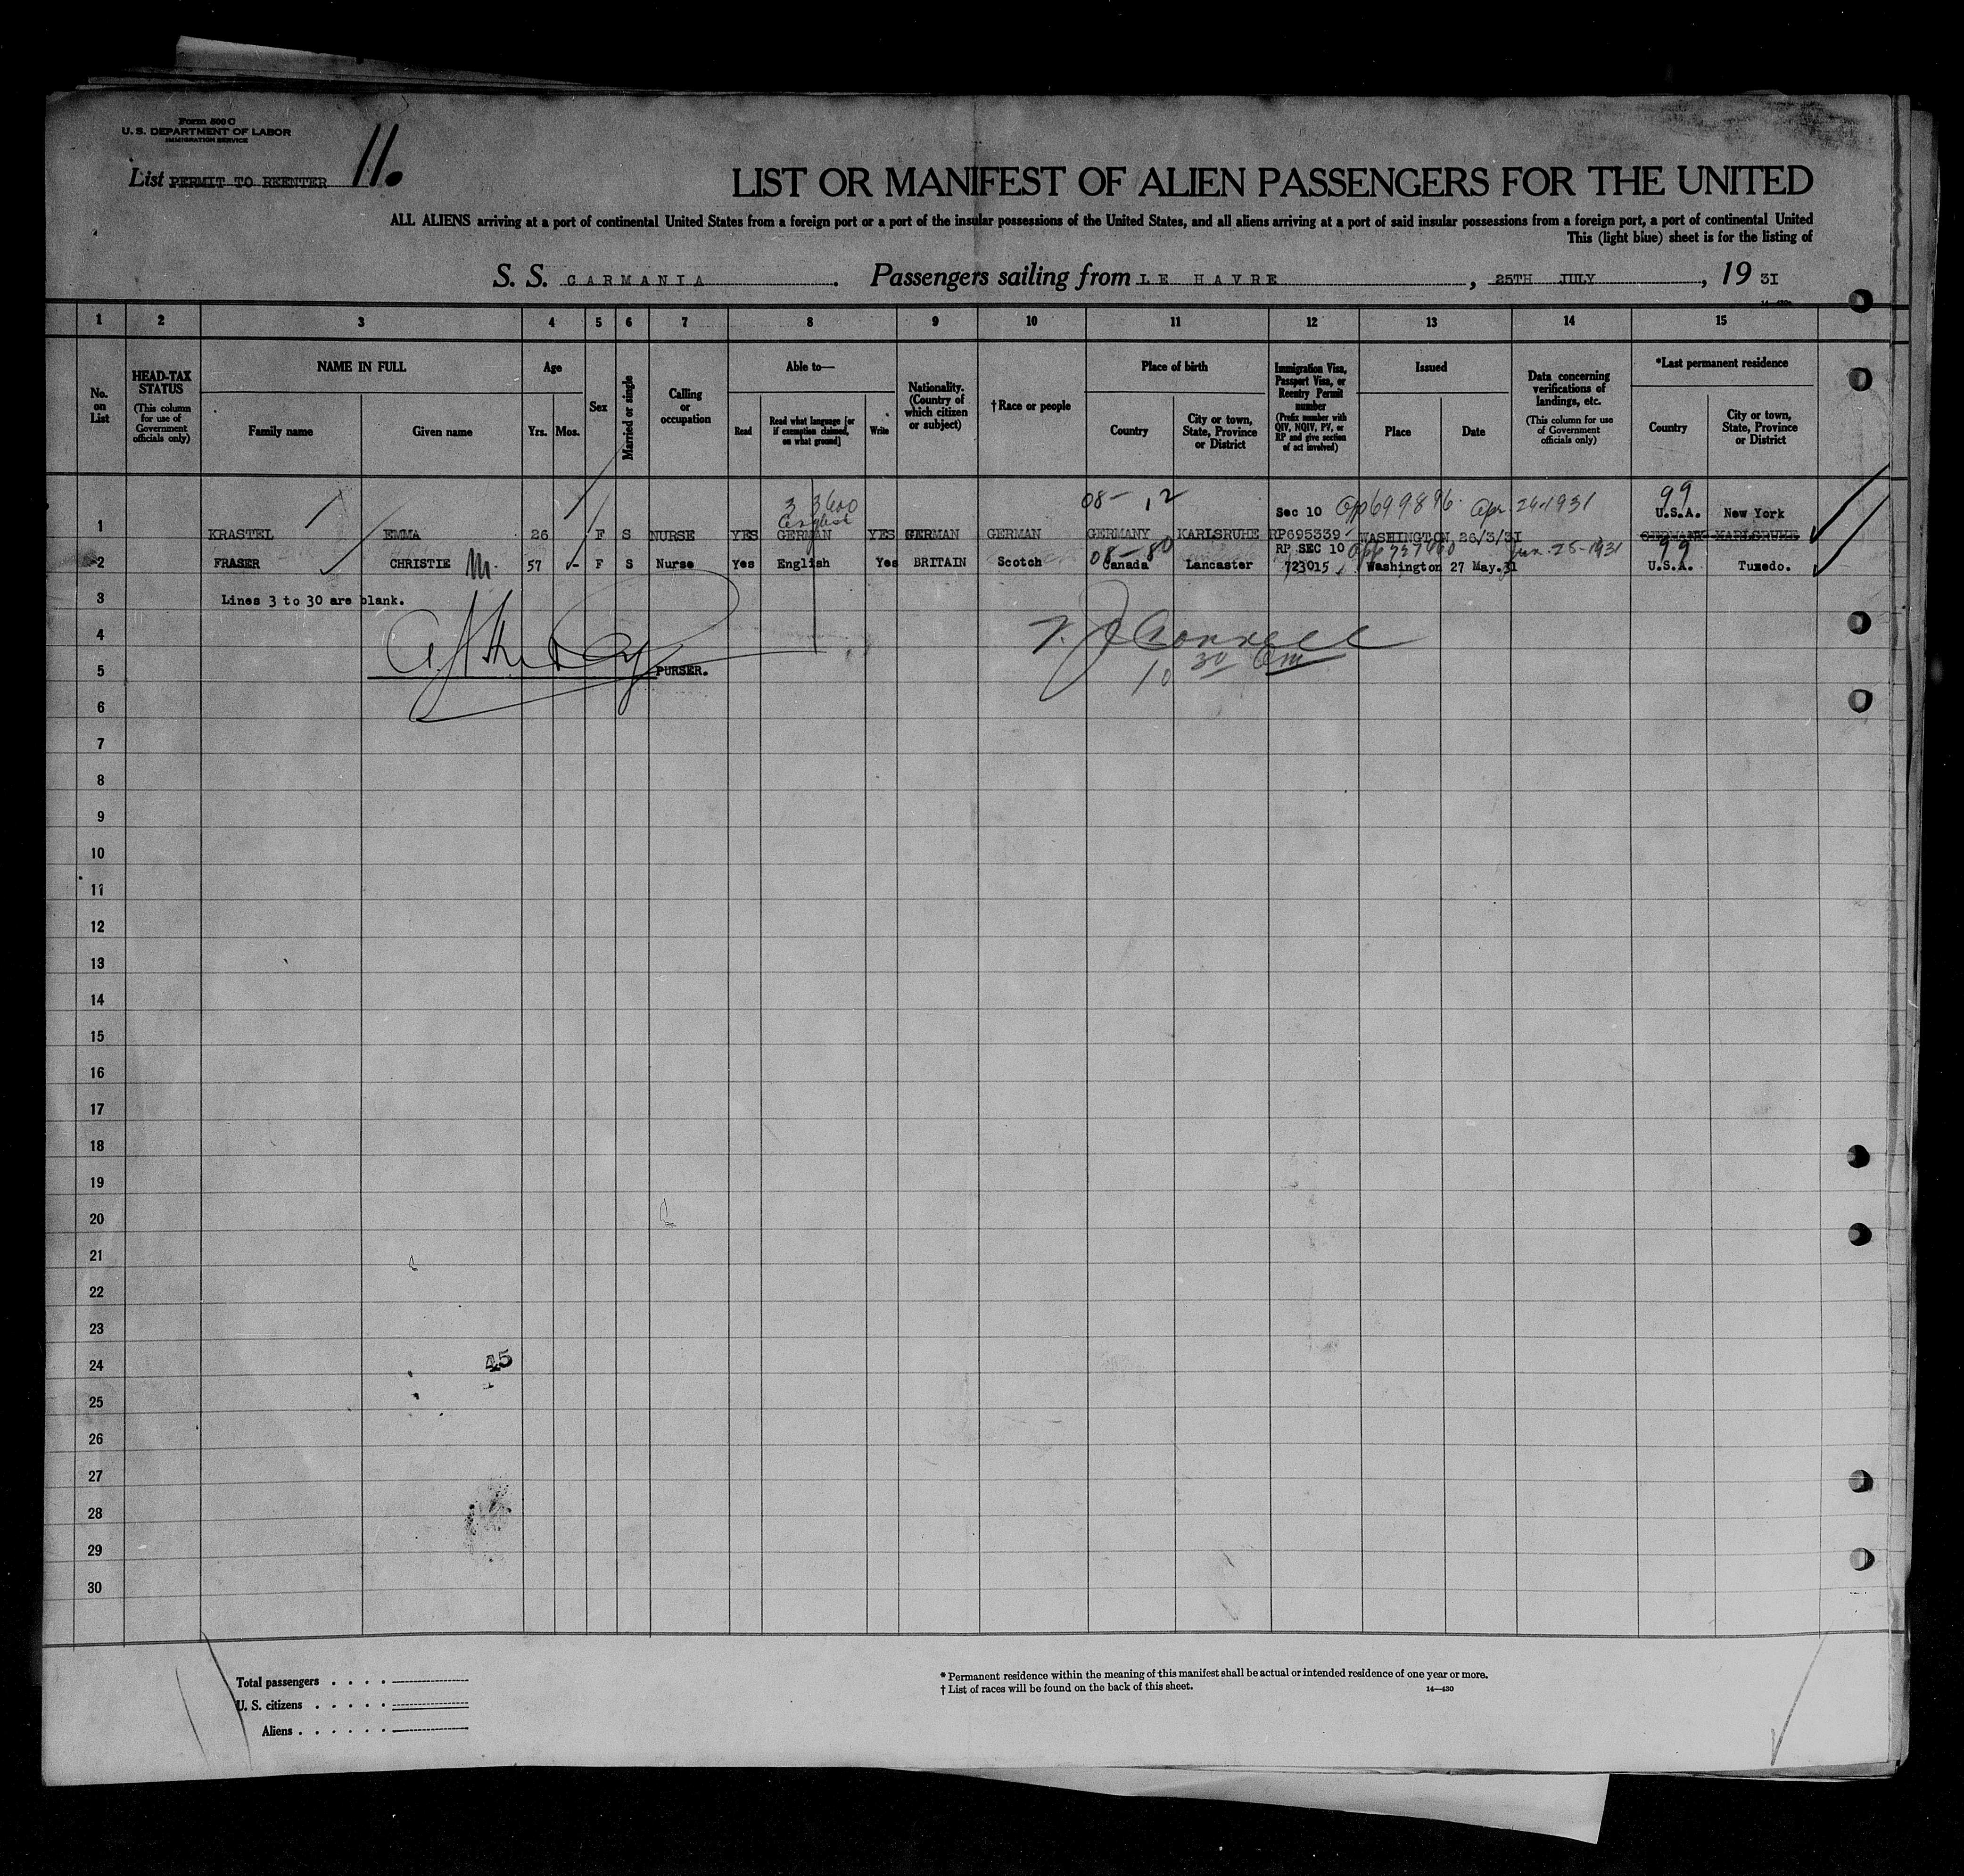 Form 500 C
U. S. DEPARTMENT OF LABOR
IMMIGRATION SERVICE
List PERMIT TO REENTER 11.
LIST OR MANIFEST OF ALIEN PASSENGERS FOR THE UNITED
ALL ALIENS arriving at a port of continental United States from a foreign port or a port of the insular possessions of the United States, and all aliens arriving at a port of said insular possessions from a foreign port, a port of continental United
This (light blue) sheet is for the listing of
S. S. CARMANIA. Passengers sailing from LE HAVRE, 25TH JULY, 19 31
1 2 3 4 5 6 7 8 9 10 11 12 13 14 15
No. on List
HEAD-TAX STATUS (This column for use of Government officials only)
NAME IN FULL
Family name
Given name
Age
Yrs.
Mos.
Sex
Married or single
Calling or occupation
Able to—
Read
Read what language [or if exemption claimed, on what ground]
Write
Nationality. (Country of which citizen or subject)
† Race or people
Place of birth
Country
City or town, State, Province or District
Immigration Visa, Passport Visa, or Reentry Permit number (Prefix number with QIV, NQIV, PV, or RP and give section of act involved)
Issued
Place
Date
Data concerning verifications of landings, etc. (This column for use of Government officials only)
*Last permanent residence
Country
City or town, State, Province or District
3 3600 08- 12 Sec 10 App 699896 Apr 24-1931 99 U.S.A. New York
English
1 KRASTEL EMMA 26 F S NURSE YES GERMAN YES GERMAN GERMAN GERMANY KARLSRUHE RP695339 WASHINGTON 26/3/31 GERMANY KARLSRUHE
08-80 RP SEC 10 Jun. 25-1931 99
2 FRASER CHRISTIE M. 57 - F S Nurse Yes English Yes BRITAIN Scotch Canada Lancaster 723015 Washington 27 May.31 U.S.A. Tuxedo.
3 Lines 3 to 30 are blank.
4
5 PURSER. 10 30 am
6
7
8
9
10
11
12
13
14
15
16
17
18
19
20
21
22
23
24 45
25
26
27
28
29
30
Total passengers . . . .
U. S. citizens . . . . .
Aliens . . . . . .
* Permanent residence within the meaning of this manifest shall be actual or intended residence of one year or more.
† List of races will be found on the back of this sheet.
14—430